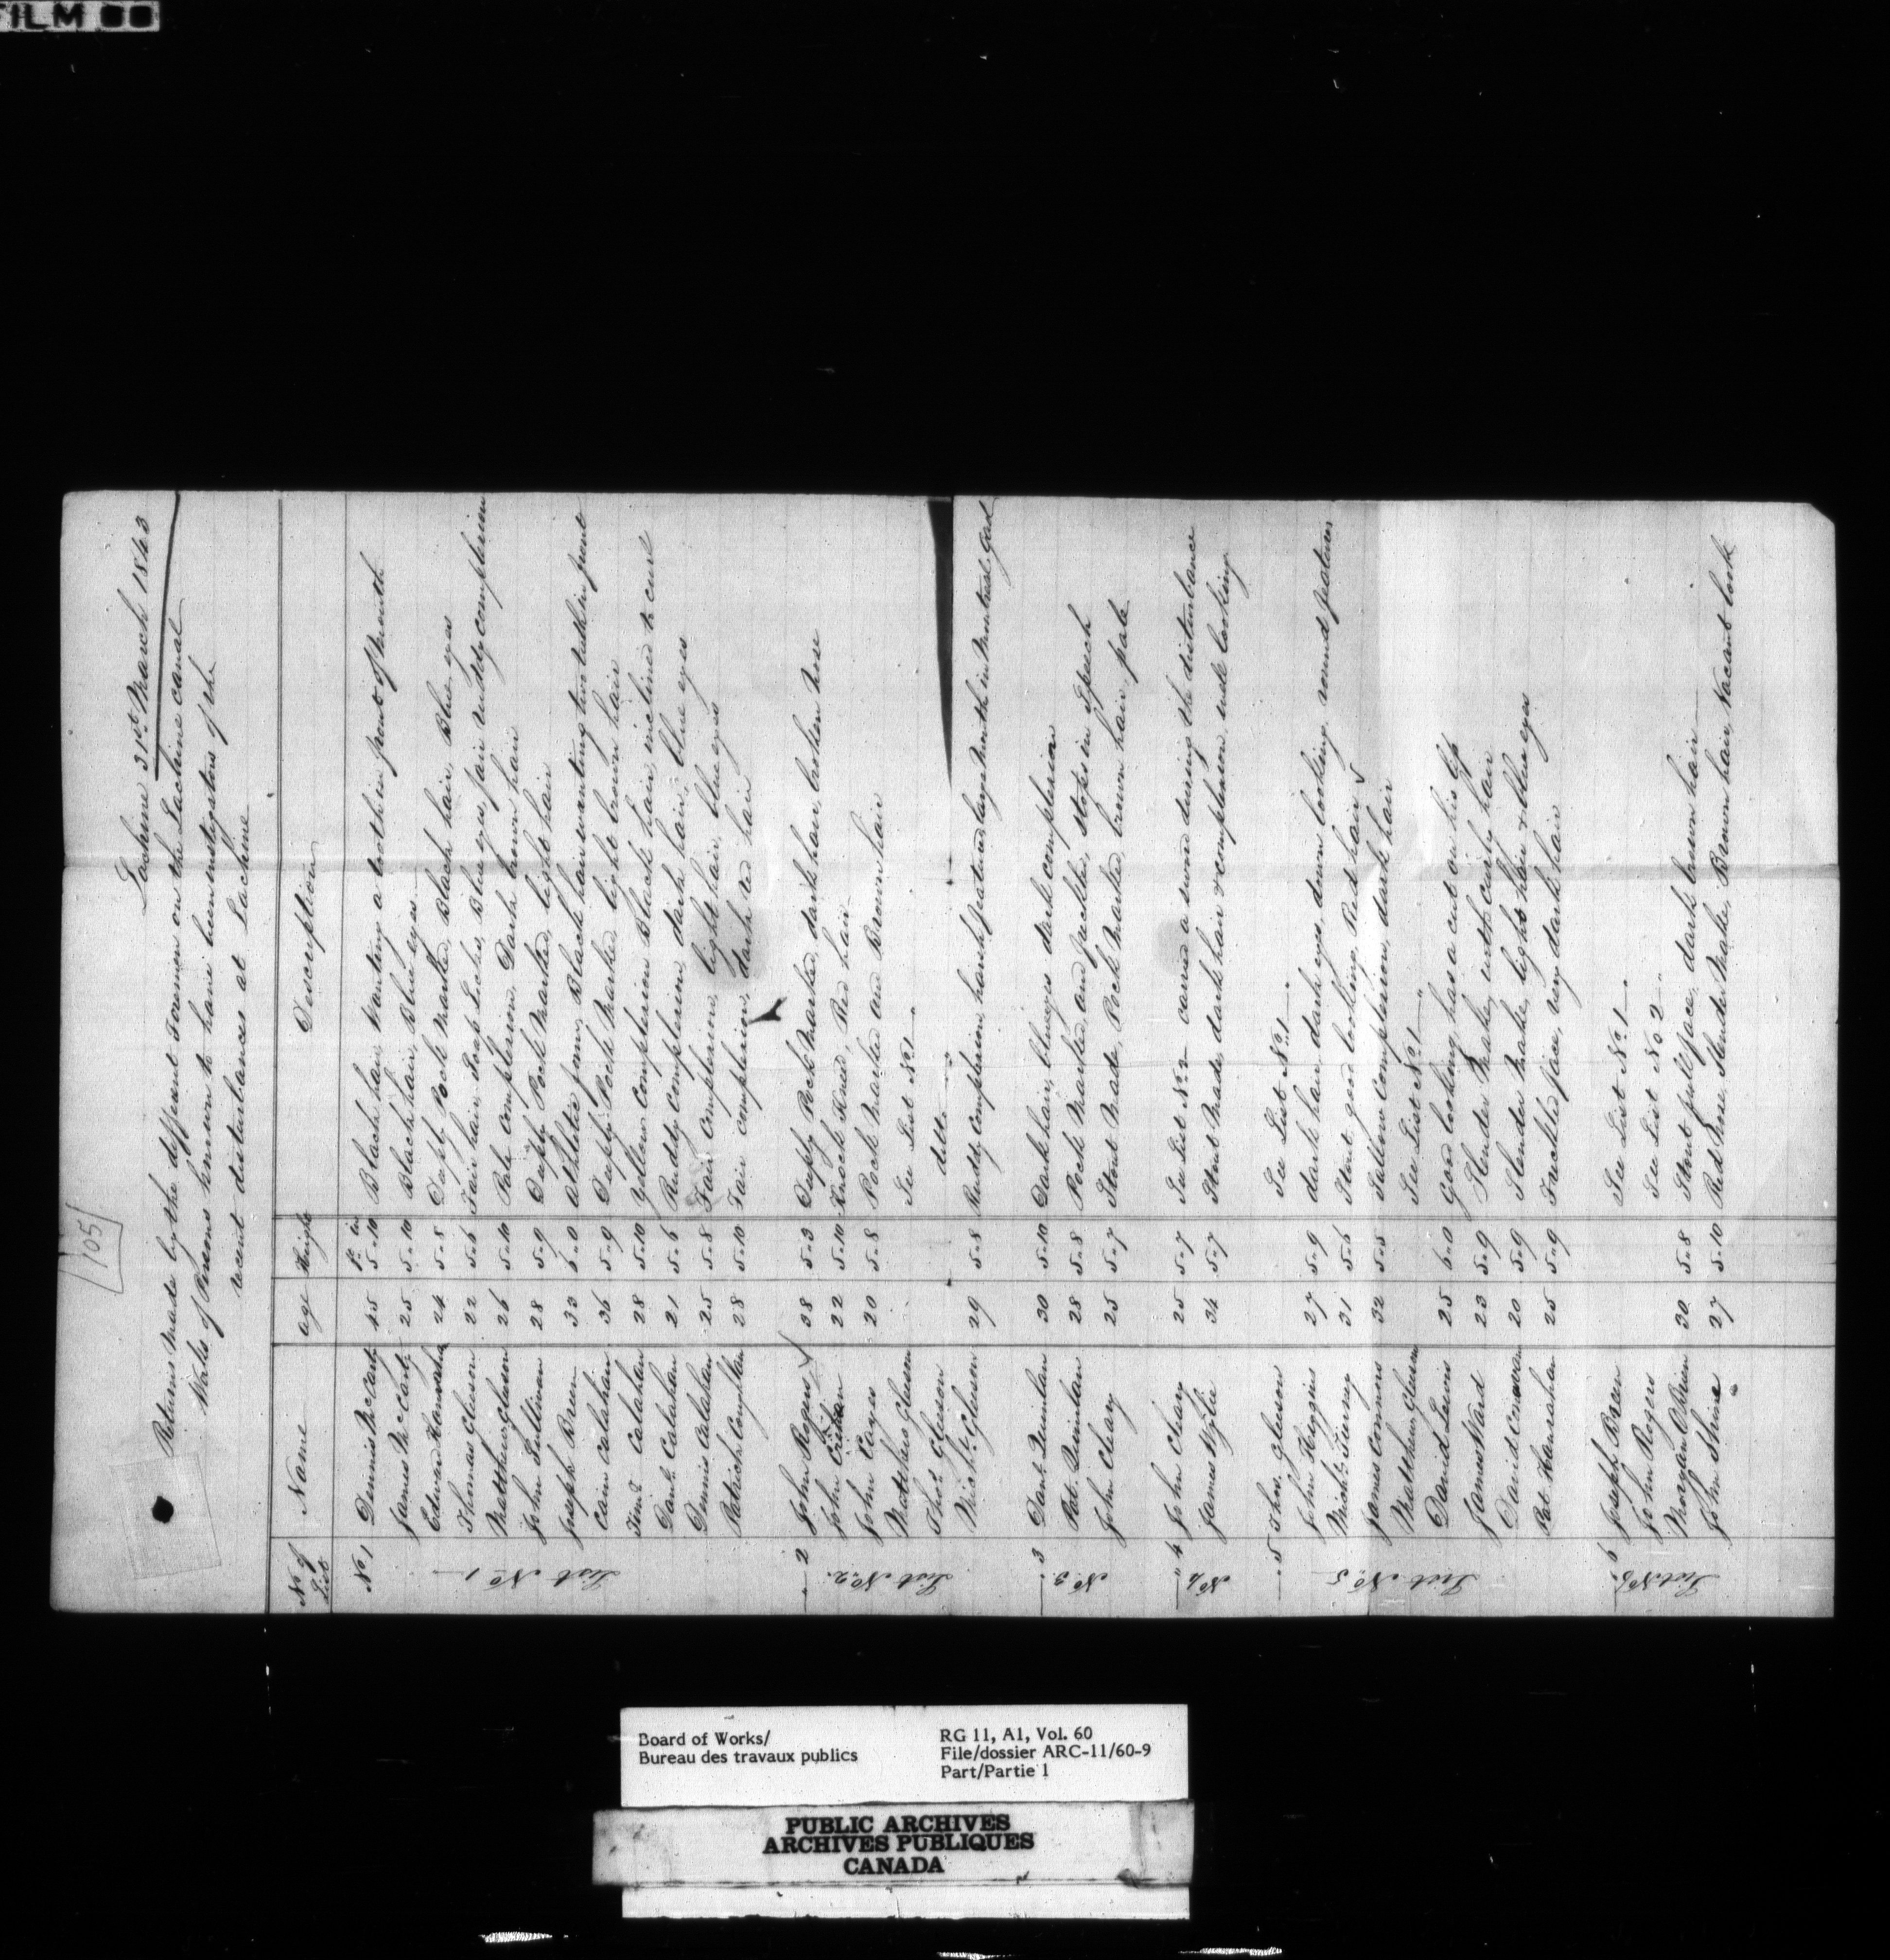 FILM
105
Lachine 31st March 1843
Returns Made by the different Foremen on the Lachine Canal
Works of Persons known to have been instigators of the
recent disturbances at Lachine
No of List Name age Height Description
ft in
No 1 Dennis McCarty 45 5-10 Black hair, Wanting a tooth in front of mouth
James McCarty 25 5-10 Black hair, Blue eyes
Edward Hanrahan 24 5-8 Pock Marked, Black hair, Blue eyes
Thomas Gleeson 22 5-6 Fair hair, Blue eyes, fair ruddy complexion
Matthew Gleeson 26 5-10 Pale Complexion, Dark brown hair
John Sullivan 28 5-9 Pock Marked, light hair
Joseph Breen 33 6-0 Athletic form, Black hair wanting two teeth in front
Cain Calahan 36 5-9 Pock Marked, light brown hair
Timy Calahan 28 5-10 Yellow Complexion Black hair, inclined to curl
Danl Calahan 21 5-6 Ruddy Complexion, dark hair, blue eyes
Dennis Calahan 25 5-8 Fair Complexion, light hair, blue eyes
Patrick Coughlan 28 5-10 Fair complexion, dark red hair
List No 1
2 John Rogers 38 5-3 Pock Marked, dark hair, broken Nose
John 22 5-10 Knock Kneed, Red hair
John Cayes 20 5-8 Pock Marked and Brown hair
Matthew Gleeson See List No 1
Thos Gleeson ditto
Michl Gleeson 29 5-8 Ruddy complexion, harsh features, lays Month in Montreal Gaol
List No 2
3 Danl Quinlan 30 5-10 Dark hair, blueyes dark complexion
Pat Quinlan 28 5-8 Pock Marked, and freckled, stops in Speech
John Cleary 25 5-7 Stout Made, Pock Marked, brown hair, pale
No 3
4 John Cleary 25 5-7 See List No 3 carried a sword during the disturbance
James Wylie 34 5-7 Stout Made, dark hair & complexion, rude looking
No 4
5 Thos. Gleeson See List No 1
John Higgins 27 5-9 dark hair, dark eyes, down looking, round features
Michl 31 5-6 Stout, good looking, Red hair
James Connors 32 5-5 Sallow Complexion, dark hair
Matthew Gleeson See List No 1
David Lewis 25 6-0 Good looking, has a cut on his lip
James Ward 23 5-9 Slender Make, with curly hair
David Conovan 20 5-9 Slender Make, light hair & blue eyes
Pat Hanrahan 25 5-9 Freckled face, very dark hair
List No 5
6 Joseph Breen See List No 1
John Rogers See List No 2
Morgan OBrien 30 5-8 Stout full face, dark brown hair
John Shine 27 5-10 Red Nose, Slender Make, Brown hair, Vacant look
List No 6
Board of Works/
Bureau des travaux publics
RG 11, A1, Vol. 60
File/dossier ARC-11/60-9
Part/Partie 1
PUBLIC ARCHIVES
ARCHIVES PUBLIQUES
CANADA